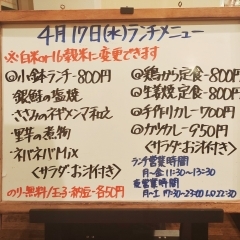 4月17日(水)ランチメニュー
※白米or16穀米に変更できます
◎小鉢ランチ-800円
銀鮭の塩焼
・ささみのネギマヨネーズ和え
・里芋の煮物
・ネバネバMix
<サラダ・お汁付き>
のり-無料/玉子・納豆-各50円
◎鶏から定食-800円
◎生姜焼定食-800円
◎手作りカレー700円
◎カツカレー950円
<サラダ・お汁付き>
ランチ営業時間
月〜金 11:30〜13:30
夜営業時間
月〜土 17:30-23:00 L.O 22:30